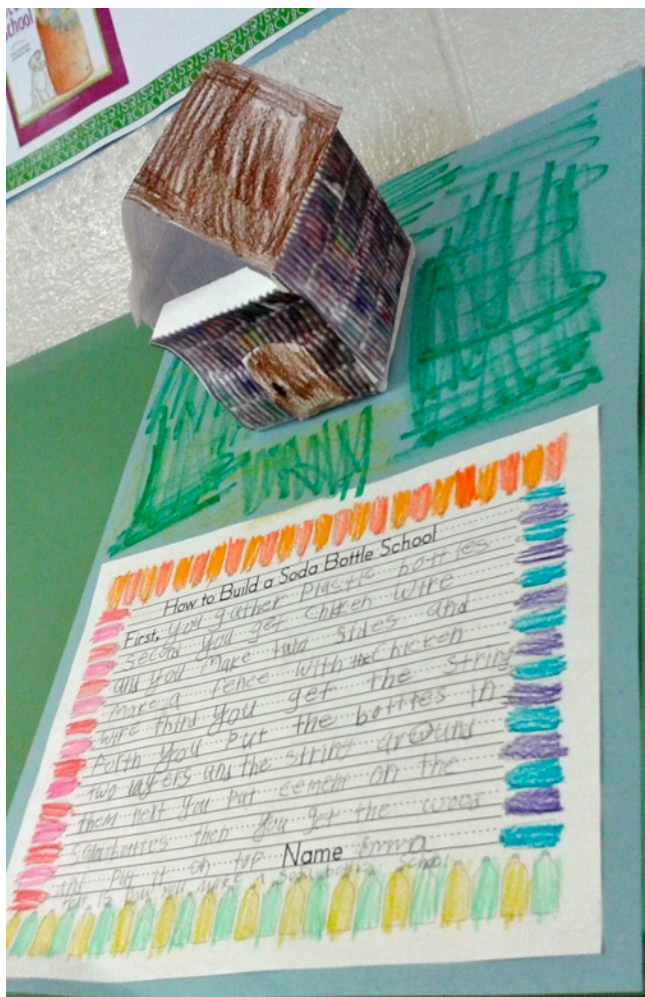 School
How to Build a Soda Bottle School
First, you gather Plastic bottles
Second you get chicken wire
and you make two sides and
make a fence with the chicken
wire third you get the string
forth you put the bottles in
two layers and the string around
them next you put cement on the
sodabottles then you get the wood
and put it on top
Name Emma
that is how you make a soda bottle School